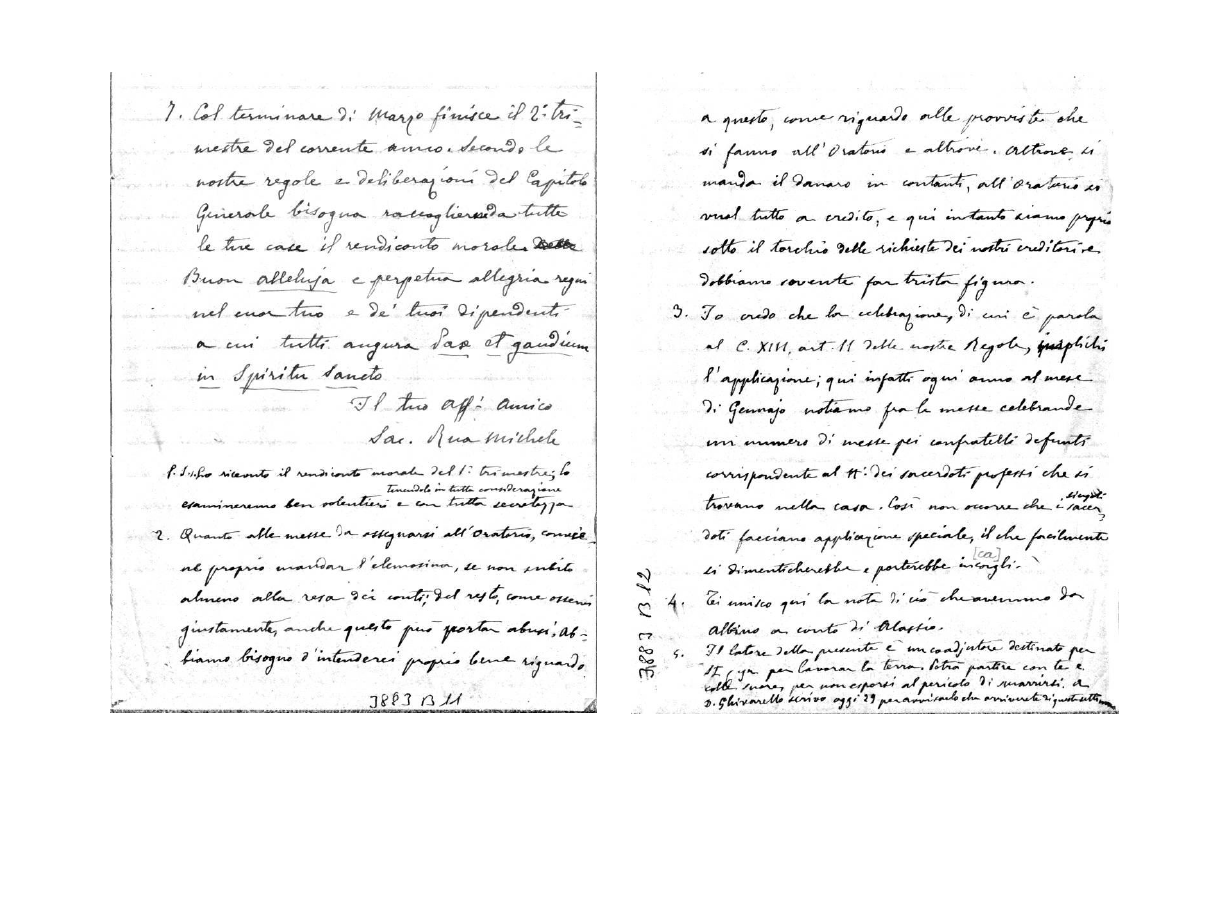 7. Col terminare di Marzo finisce il 2° tri=
mestre del corrente anno. Secondo le
nostre regole e deliberazioni del Capitolo
Generale bisogna raccogliere da tutte
le tue case il rendiconto morale
Buon alleluja e perpetua allegria regni
nel cuor tuo e de' tuoi dipendenti
a cui tutti augura Pax et gaudium
in Spiritu Sancto
Il tuo Aff.° Amico
Sac. Rua Michele
P.S. 1. Ho ricevuto il rendiconto morale del 1° trimestre; lo
tenendolo in tutta considerazione
esamineremo ben volentieri e con tutta secretezza
2. Quanto alle messe da assegnarsi all'Oratorio, convie=
ne proprio mandar l'elemosina, se non subito
almeno alla resa dei conti; del resto, come osservi
giustamente, anche questo può portar abusi, Ab=
biamo bisogno d'intenderci proprio bene riguardo
3883 B 11
a questo, come riguardo alle provviste che
si fanno all'Oratorio e altrove. Altrove si
manda il danaro in contanti, all'Oratorio si
vuol tutto a credito, e qui intanto siamo proprio
sotto il torchio delle richieste dei nostri creditori e
dobbiamo sovente far trista figura.
3. Io credo che la celebrazione, di cui è parola
al C. XIII, art. 11 delle nostre Regole, implichi
l'applicazione; qui infatti ogni anno al mese
di Gennajo notiamo fra le messe celebrande
un numero di messe pei confratelli defunti
corrispondente al N° dei sacerdoti professi che si
trovano nella casa. Così non occorre che i
singoli
sacer=
doti facciano applicazione speciale, il che facilmente
[ca]
si dimenticherebbe e porterebbe incagli.
4. Ti unisco qui la nota di ciò che avemmo da
Albino a conto di Alassio.
5. Il latore della presente è un coadjutore destinato per
St. Cyr per lavorar la terra. Potrà partire con te e
colle suore, per non esporsi al pericolo di smarrirsi. A
D. Ghivarello scrivo oggi 29 per avvisarlo che arriverete
3883 B 12